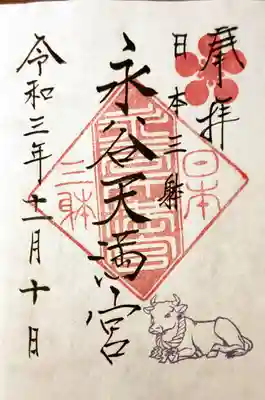 奉拝
日本三躰
永谷天満宮
令和三年十一月十日
日本
三躰